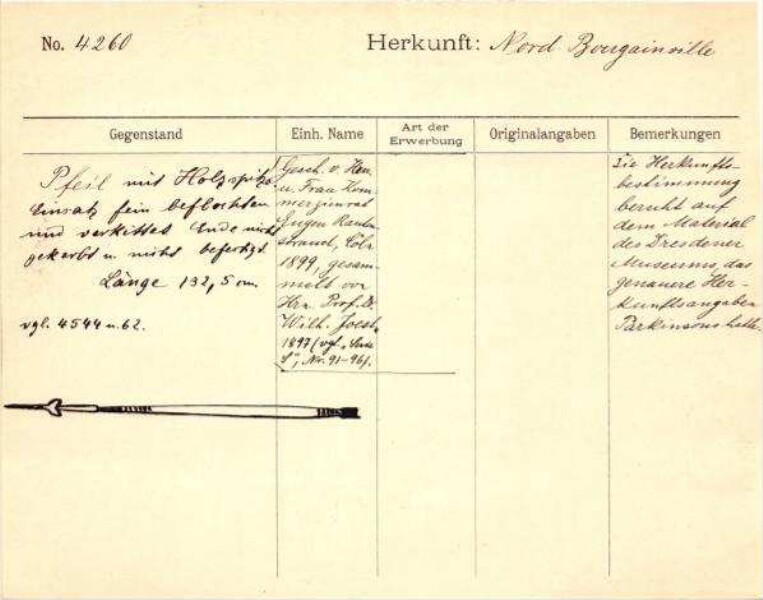 No. 4260
Herkunft: Nord Bougainville
Gegenstand
Einh. Name
Art der Erwerbung
Originalangaben
Bemerkungen
Pfeil mit Holzspitze
Einsatz fein beflochten
und verkittet Ende nicht
gekerbt u. nicht befestigt.
Länge 132,5 cm.
vgl. 4544 u. 62.
Gesch. v. Herrn
u. Frau Kom-
merzienrat
Eugen Rauten-
strauch, Cöln
1899, gesam-
melt von
Hrn. Prof. Dr.
Wilh. Joest,
1897 (vgl.
Nr. 91-96).
Die Herkunfts-
bestimmung
beruht auf
dem Material
des Dresdener
Museums, das
genauere Her-
kunftsangaben
Parkinsons hatte.